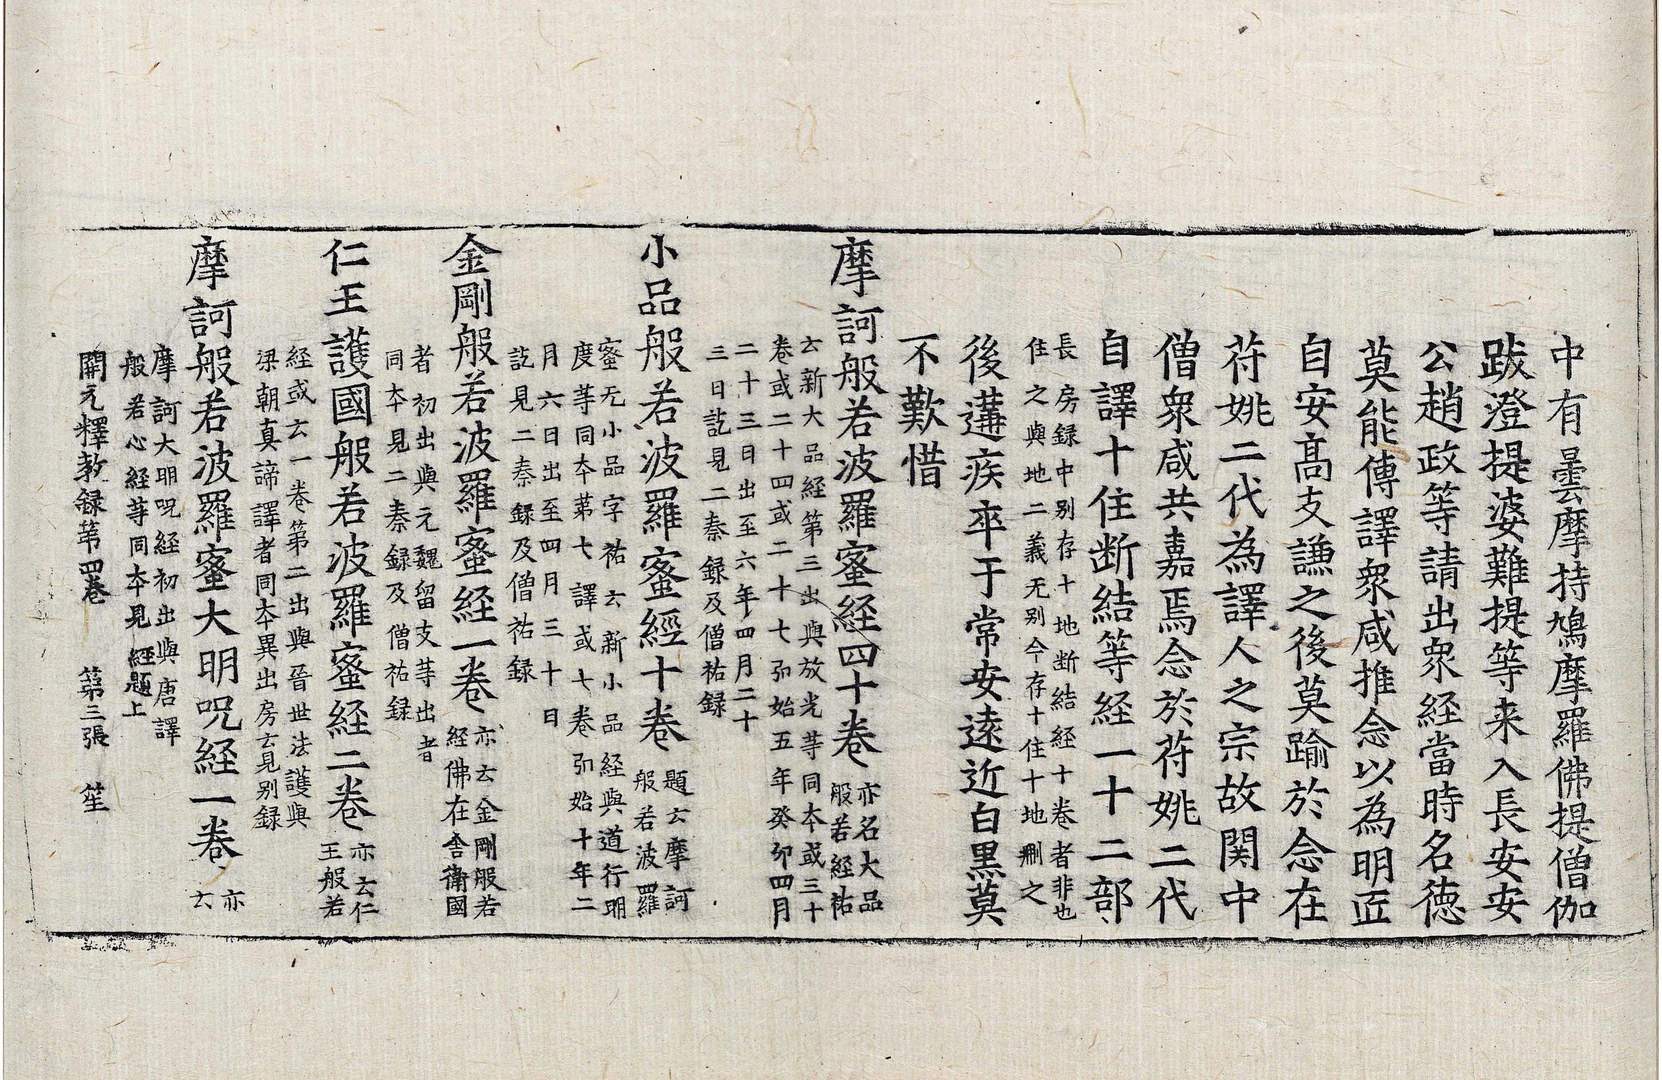 中有曇摩持鳩摩羅佛提僧伽
跋澄提婆難提等来入長安安
公趙政等請出衆経當時名德
莫能傳譯衆咸推念以為明匠
自安髙支謙之後莫踰於念在
苻姚二代為譯人之宗故関中
僧衆咸共嘉焉念於苻姚二代
自譯十住断結等経一十二部
長房録中别存十地断結経十卷者非也
住之與地二義无别今存十住十地刪之
後遘疾卒于常安逺近白黒莫
不歎惜
摩訶般若波羅蜜経四十卷
亦名大品
般若経祐
云新大品経第三出與放光等同本或三十
卷或二十四或二十七弥始五年癸卯四月
二十三日出至六年四月二十
三日訖見二秦録及僧祐録
小品般若波羅蜜經十卷
題云摩訶
般若波羅
蜜无小品字祐云新小品経與道行明
度等同本苐七譯或七卷弥始十年二
月六日出至四月三十日
訖見二秦録及僧祐録
金剛般若波羅蜜経一卷
亦云金剛般若
経佛在舎衛國
者初出與元魏留支等出者
同本見二秦録及僧祐録
仁王護國般若波羅蜜経二卷
亦云仁
王般若
経或云一卷第二出與晉世法護與
梁朝真諦譯者同本異出房云見别録
摩訶般若波羅蜜大明呪経一卷
亦
云
摩訶大明呪経初出與唐譯
般若心経等同本見経題上
開元釋教録苐四卷　第三張　笙